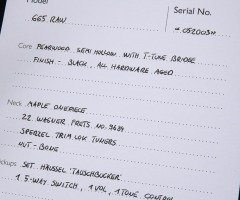 Model
Serial No.
665 RAW
# 052003M
Core PEARWOOD SEMI HOLLOW WITH T-TUNE BRIDGE
FINISH - BLACK, ALL HARDWARE AGED
Neck MAPLE ONEPIECE
22 WAGNER FRETS NO. 9684
SPERZEL TRIM LOK TUNERS
NUT - BONE
ckups SET HÄUSSEL 'TAUSCHBUCKER'
1 5-WAY SWITCH, 1 VOL, 1 TONE CONTROL